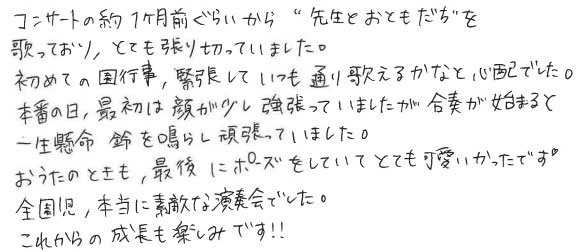 コンサートの約1ヶ月前ぐらいから“先生とおともだち”を
歌っており,とても張り切っていました。
初めての園行事,緊張していつも通り歌えるかなと心配でした。
本番の日,最初は顔が少し強張っていましたが合奏が始まると
一生懸命 鈴を鳴らし頑張っていました。
おうたのときも,最後にポーズをしていてとても可愛いかったです♡
全園児,本当に素敵な演奏会でした。
これからの成長も楽しみです!!